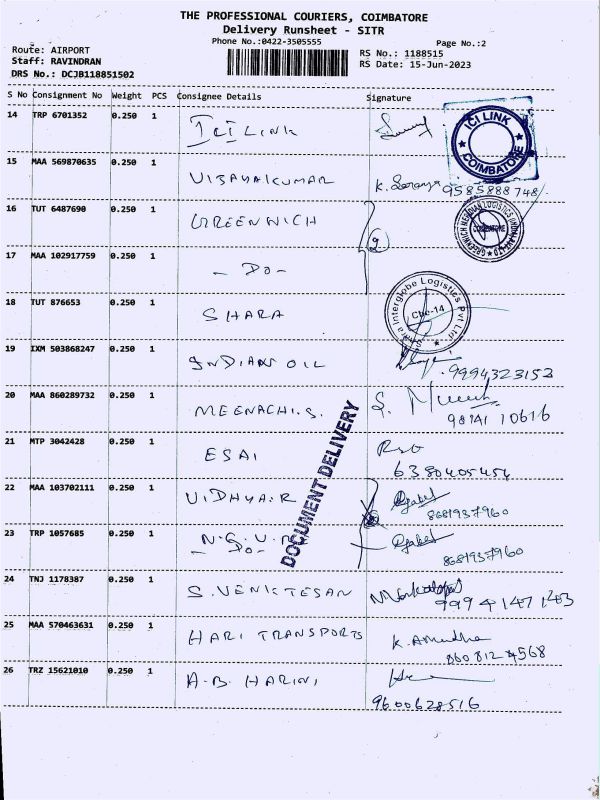 THE PROFESSIONAL COURIERS, COIMBATORE
Delivery Runsheet - SITR
Phone No.:0422-3505555
Page No.:2
Route: AIRPORT
RS No.: 1188515
Staff: RAVINDRAN
RS Date: 15-Jun-2023
DRS No.: DCJB118851502
S No Consignment No Weight PCS Consignee Details Signature
14 TRP 6701352 0.250 1 ICI LINK
ICI LINK COIMBATORE
15 MAA 569870635 0.250 1 VIJAYAKUMAR K. Saranya
9585888748/-
16 TUT 6487690 0.250 1 GREENWICH
GREENWICH MERIDIAN LOGISTICS (INDIA) PVT LTD COIMBATORE
2
17 MAA 102917759 0.250 1 - DO -
18 TUT 876653 0.250 1 SHARA
Interglobe Logistics Pvt Ltd Cbe-14
19 IXM 503868247 0.250 1 INDIAN OIL
9994323152
20 MAA 860289732 0.250 1 MEENACHI.S.
98141 10616
21 MTP 3042428 0.250 1 ESAI
6380405454
DOCUMENT DELIVERY
22 MAA 103702111 0.250 1 VIDHYA.R
8681937960
23 TRP 1057685 0.250 1 N.G.V.
- Do -
8681937960
24 TNJ 1178387 0.250 1 S. VENKTESAN
9994147203
25 MAA 570463631 0.250 1 HARI TRANSPORTS K. Amudha
860812 4568
26 TRZ 15621010 0.250 1 A.B. HARINI
9600628516